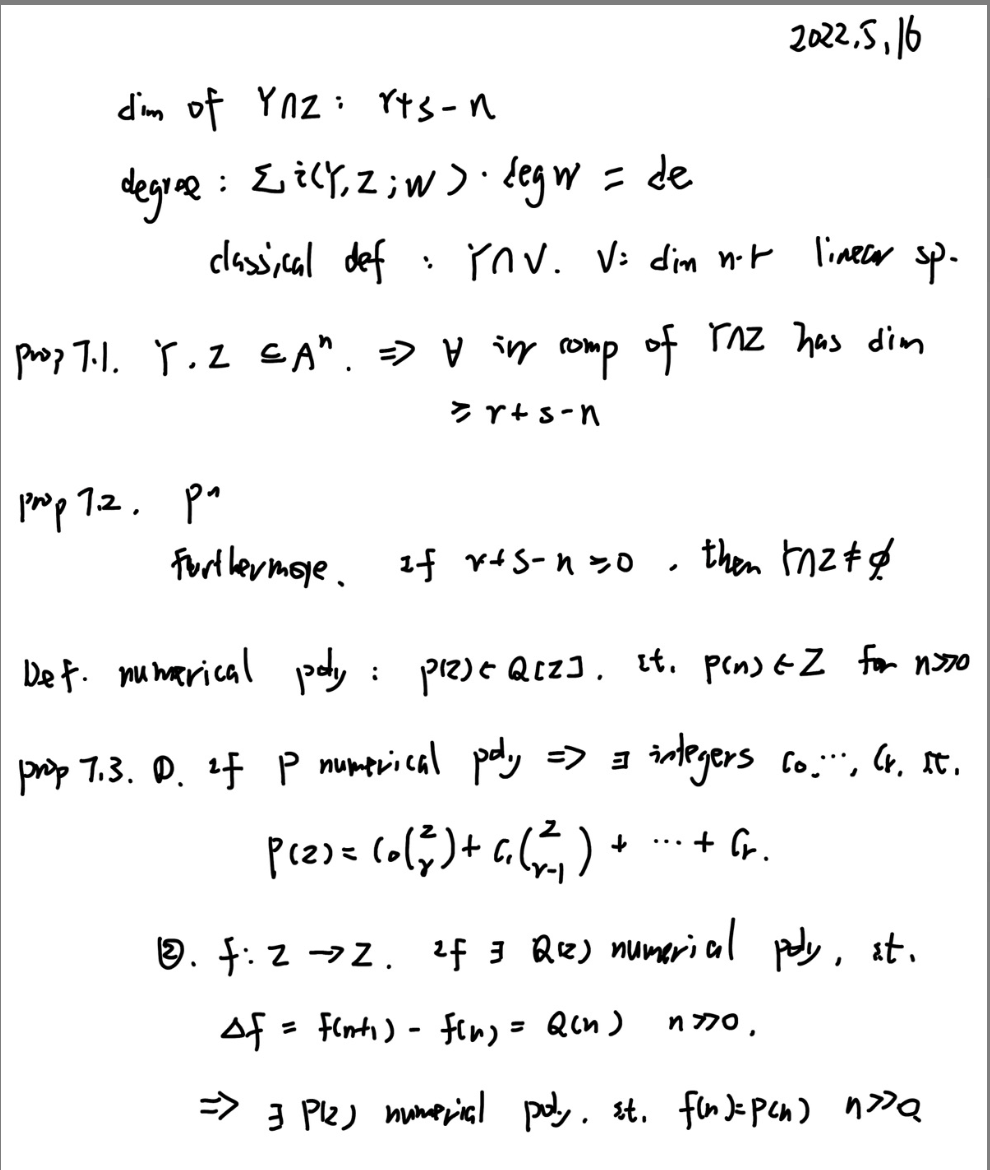 2022.5.16
dim of Y∩Z : r+s-n
degree : Σ i(Y,Z;W) · deg W = de
classical def : Y∩V. V: dim n-r linear sp.
prop 7.1. Y. Z ⊆ Aⁿ. ⇒ ∀ irr comp of Y∩Z has dim
≥ r+s-n
prop 7.2. Pⁿ
Furthermore. if r+s-n ≥0 . then Y∩Z ≠ ∅
Def. numerical poly : P(z) ∈ Q[z]. st. p(n) ∈ Z for n≫0
prop 7.3. ①. if P numerical poly ⇒ ∃ integers c₀.⋯, cᵣ. st.
P(z) = c₀(z r) + c₁(z r-1) + ⋯ + cᵣ.
②. f: Z → Z. if ∃ Q(z) numerical poly, st.
△f = f(n+1) - f(n) = Q(n) n≫0.
⇒ ∃ P(z) numerical poly. st. f(n)=P(n) n≫0